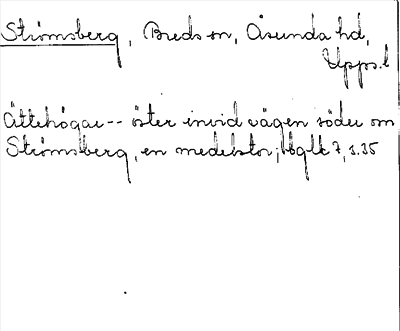 Strömsberg, Breds sn, Åsunda hd,
Upps.l
Ättehögar -- öster invid vägen söder om
Strömsberg, en medelstor; Bglk 7, s.35